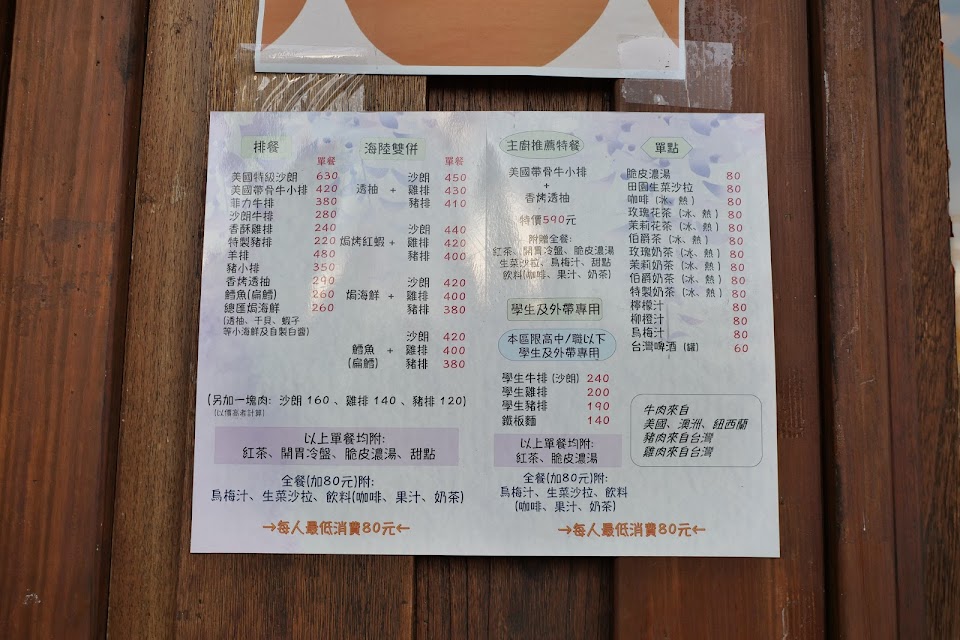 排餐
單餐
美國特級沙朗 630
美國帶骨牛小排 420
菲力牛排 380
沙朗牛排 280
香酥雞排 240
特製豬排 220
羊排 480
豬小排 350
香烤透抽 290
鱈魚(扁鱈) 260
總匯焗海鮮 260
(透抽、干貝、蝦子
等小海鮮及自製白醬)
海陸雙併
單餐
沙朗 450
透抽 + 雞排 430
豬排 410
沙朗 440
焗烤紅蝦 + 雞排 420
豬排 400
沙朗 420
焗海鮮 + 雞排 400
豬排 380
沙朗 420
鱈魚 + 雞排 400
(扁鱈) 豬排 380
(另加一塊肉: 沙朗 160、雞排 140、豬排 120)
(以價高者計算)
以上單餐均附:
紅茶、開胃冷盤、脆皮濃湯、甜點
全餐(加80元)附:
烏梅汁、生菜沙拉、飲料(咖啡、果汁、奶茶)
→每人最低消費80元←
主廚推薦特餐
美國帶骨牛小排
+
香烤透抽
特價590元
附贈全餐:
紅茶、開胃冷盤、脆皮濃湯
生菜沙拉、烏梅汁、甜點
飲料(咖啡、果汁、奶茶)
學生及外帶專用
本區限高中/職以下
學生及外帶專用
學生牛排 (沙朗) 240
學生雞排 200
學生豬排 190
鐵板麵 140
以上單餐均附:
紅茶、脆皮濃湯
全餐(加80元)附:
烏梅汁、生菜沙拉、飲料
(咖啡、果汁、奶茶)
→每人最低消費80元←
單點
脆皮濃湯 80
田園生菜沙拉 80
咖啡 (冰、熱) 80
玫瑰花茶 (冰、熱) 80
茉莉花茶 (冰、熱) 80
伯爵茶 (冰、熱) 80
玫瑰奶茶 (冰、熱) 80
茉莉奶茶 (冰、熱) 80
伯爵奶茶 (冰、熱) 80
特製奶茶 (冰、熱) 80
檸檬汁 80
柳橙汁 80
烏梅汁 80
台灣啤酒 (罐) 60
牛肉來自
美國、澳洲、紐西蘭
豬肉來自台灣
雞肉來自台灣